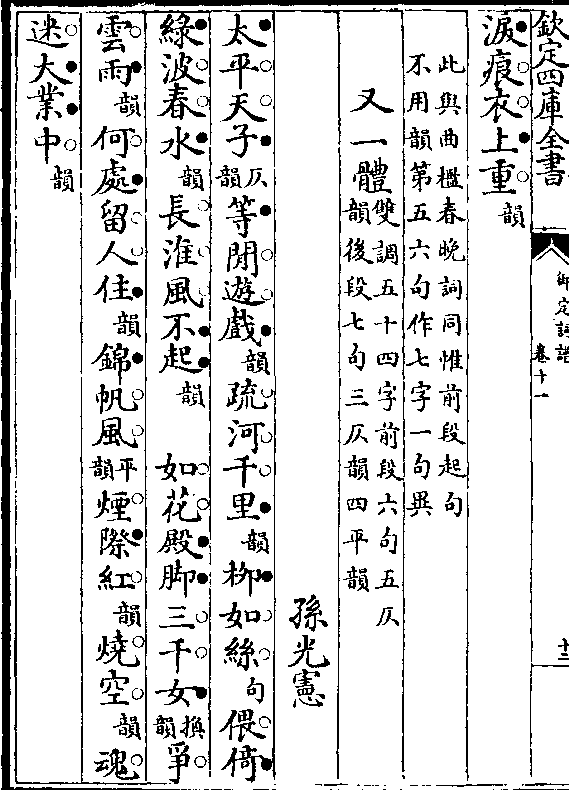 欽定四庫全書
御定詞譜
卷十一
十三
淚痕衣上重韻
此與曲檻春晚詞同惟前段起句
不用韻第五六句作七字一句異
又一體雙調五十四字前段六句五仄
韻後段七句三仄韻四平韻
孫光憲
太平天子仄韻等閒遊戲韻疏河千里韻柳如絲句偎倚
綠波春水韻長淮風不起韻 如花殿腳三千女換韻爭
雲雨韻何處留人住韻錦帆風平韻煙際紅韻燒空韻魂
迷大業中韻